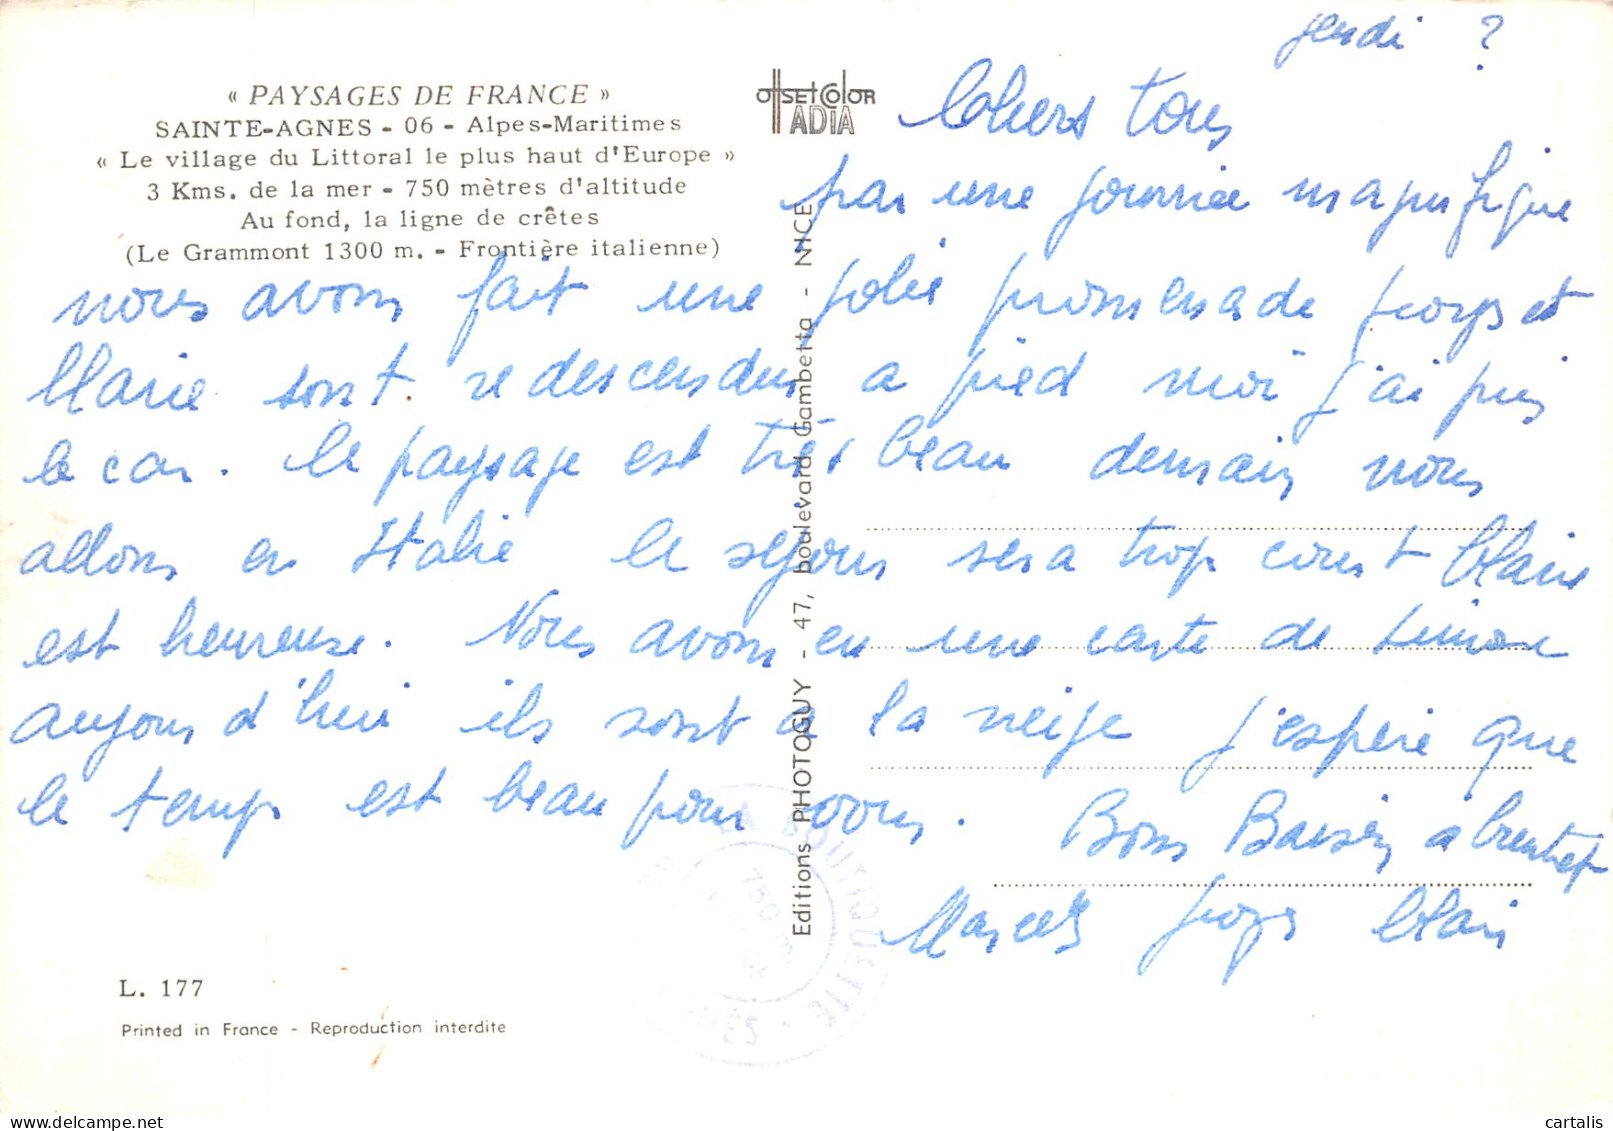 « PAYSAGES DE FRANCE »
SAINTE-AGNES - 06 - Alpes-Maritimes
« Le village du Littoral le plus haut d'Europe »
3 Kms. de la mer - 750 mètres d'altitude
Au fond, la ligne de crêtes
(Le Grammont 1300 m. - Frontière italienne)
OffSEtCOlOR
ADIA
jeudi ?
Chers tous
par une journée magnifique
nous avons fait une jolie promenade et
Marie sont redescendus a pied moi j'ai pris
le car. le paysage est très beau demain nous
allons en Italie le séjour sera trop court
est heureuse. Nous avons eu une carte de Simon
aujourd'hui ils sont a la neige j'espère que
le temps est beau pour vous. Bons Baisers a bientôt
Editions PHOTOGUY - 47, boulevard Gambetta - NICE
LA BOUTIQUETTE
L. 177
Printed in France - Reproduction interdite
cartalis